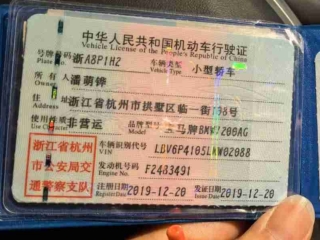 中华人民共和国机动车行驶证
Vehicle License of the People's Republic of China
号牌号码 浙A8P1HZ 车辆类型 小型轿车
Plate No. Vehicle Type
所有人 潘萌铧
Owner
住址 浙江省杭州市拱墅区临一街138号
Address
使用性质 非营运 品牌型号 宝马牌BMW7200AG
Use Character Model
浙江省杭州市公安局交通警察支队
车辆识别代号 LBV6P4105LMW02088
VIN
发动机号码 F2483491
Engine No.
注册日期 2019-12-20 发证日期 2019-12-20
Register Date Issue Date